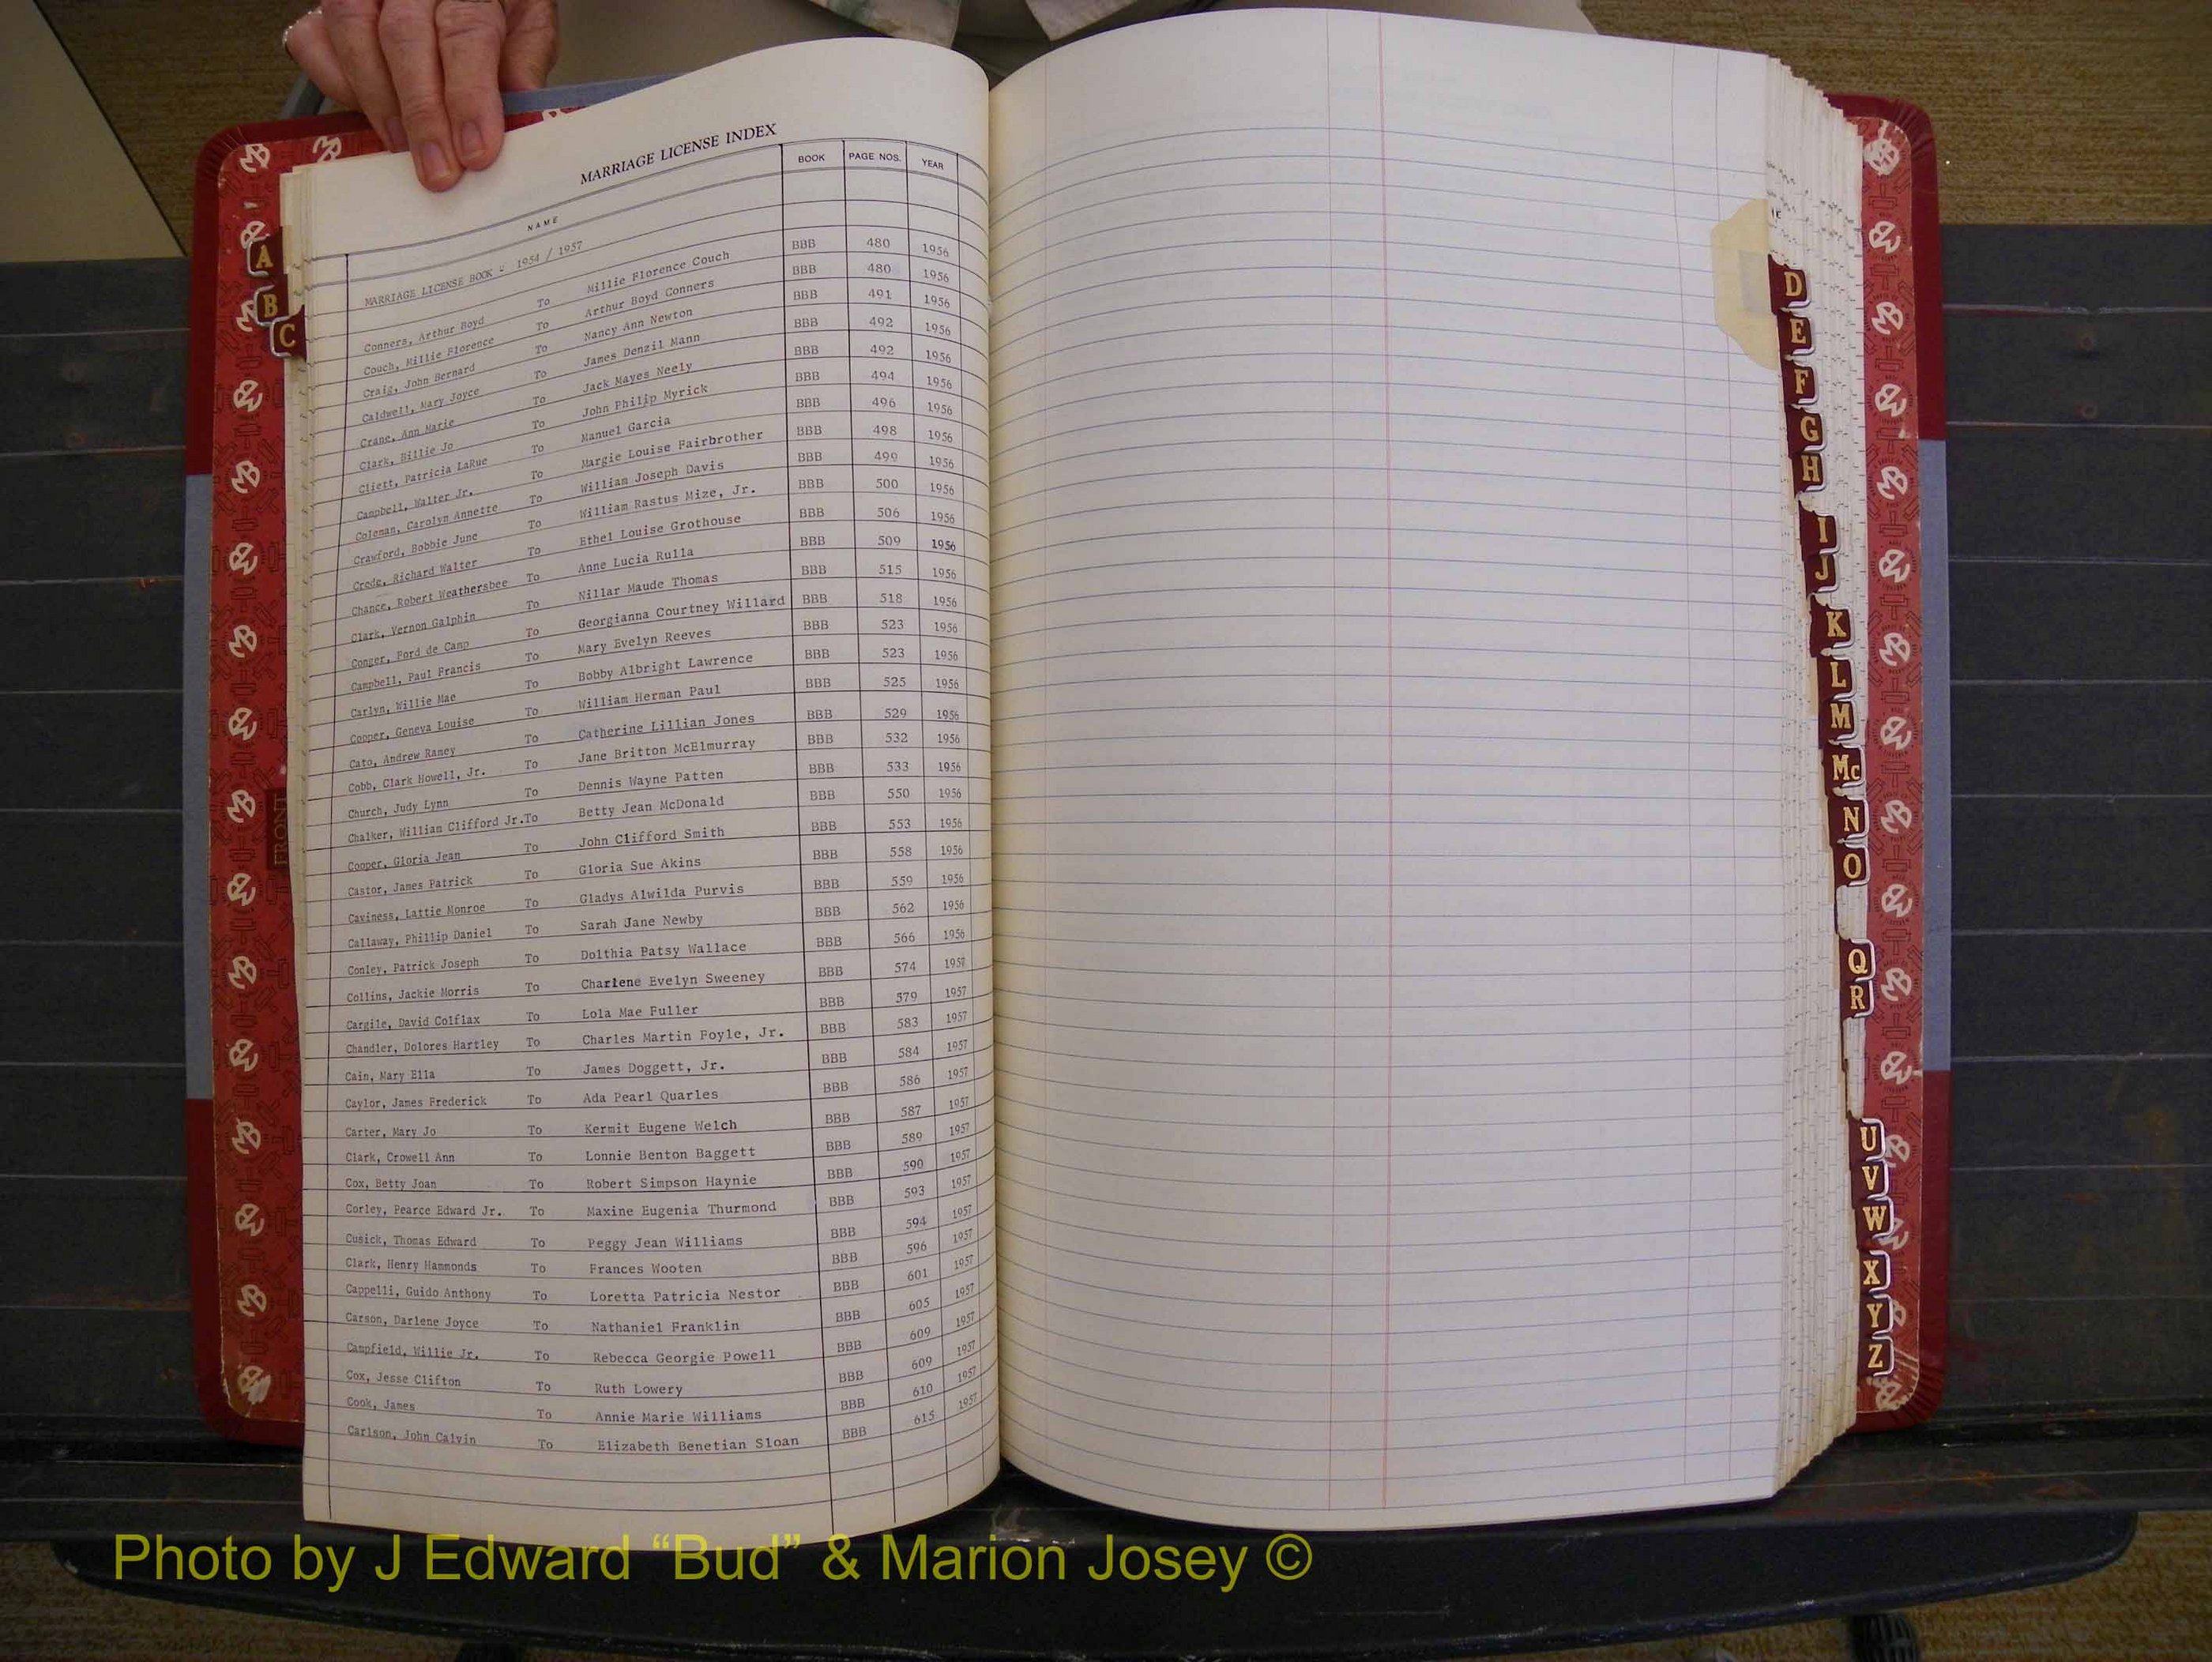 MARRIAGE LICENSE INDEX
NAME BOOK PAGE NOS. YEAR
MARRIAGE LICENSE BOOK 1954 / 1957
Conners, Arthur Boyd To Millie Florence Couch BBB 480 1956
Couch, Millie Florence To Arthur Boyd Conners BBB 480 1956
Craig, John Bernard To Nancy Ann Newton BBB 491 1956
Caldwell, Mary Joyce To James Denzil Mann BBB 492 1956
Crane, Ann Marie To Jack Mayes Neely BBB 492 1956
Clark, Billie Jo To John Philip Myrick BBB 494 1956
Cliett, Patricia LaRue To Manuel Garcia BBB 496 1956
Campbell, Walter Jr. To Margie Louise Fairbrother BBB 498 1956
Coleman, Carolyn Annette To William Joseph Davis BBB 499 1956
Crawford, Bobbie June To William Rastus Mize, Jr. BBB 500 1956
Crede, Richard Walter To Ethel Louise Grothouse BBB 506 1956
Chance, Robert Weathersbee To Anne Lucia Rulla BBB 509 1956
Clark, Vernon Galphin To Nillar Maude Thomas BBB 515 1956
Conger, Ford de Camp To Georgianna Courtney Willard BBB 518 1956
Campbell, Paul Francis To Mary Evelyn Reeves BBB 523 1956
Carlyn, Willie Mae To Bobby Albright Lawrence BBB 523 1956
Cooper, Geneva Louise To William Herman Paul BBB 525 1956
Cato, Andrew Raney To Catherine Lillian Jones BBB 529 1956
Cobb, Clark Howell, Jr. To Jane Britton McElmurray BBB 532 1956
Church, Judy Lynn To Dennis Wayne Patten BBB 533 1956
Chalker, William Clifford Jr.To Betty Jean McDonald BBB 550 1956
Cooper, Gloria Jean To John Clifford Smith BBB 553 1956
Castor, James Patrick To Gloria Sue Akins BBB 558 1956
Caviness, Lattie Monroe To Gladys Alwilda Purvis BBB 559 1956
Callaway, Phillip Daniel To Sarah Jane Newby BBB 562 1956
Conley, Patrick Joseph To Dolthia Patsy Wallace BBB 566 1956
Collins, Jackie Morris To Charlene Evelyn Sweeney BBB 574 1957
Cargile, David Colflax To Lola Mae Fuller BBB 579 1957
Chandler, Dolores Hartley To Charles Martin Foyle, Jr. BBB 583 1957
Cain, Mary Ella To James Doggett, Jr. BBB 584 1957
Caylor, James Frederick To Ada Pearl Quarles BBB 586 1957
Carter, Mary Jo To Kermit Eugene Welch BBB 587 1957
Clark, Crowell Ann To Lonnie Benton Baggett BBB 589 1957
Cox, Betty Joan To Robert Simpson Haynie BBB 590 1957
Corley, Pearce Edward Jr. To Maxine Eugenia Thurmond BBB 593 1957
Cusick, Thomas Edward To Peggy Jean Williams BBB 594 1957
Clark, Henry Hammonds To Frances Wooten BBB 596 1957
Cappelli, Guido Anthony To Loretta Patricia Nestor BBB 601 1957
Carson, Darlene Joyce To Nathaniel Franklin BBB 605 1957
Campfield, Willie Jr. To Rebecca Georgie Powell BBB 609 1957
Cox, Jesse Clifton To Ruth Lowery BBB 609 1957
Cook, James To Annie Marie Williams BBB 610 1957
Carlson, John Calvin To Elizabeth Benetian Sloan BBB 615 1957
A
B
C
FRONT
D
E
F
G
H
I
J
K
L
M
Mc
N
O
Q
R
U
V
W
X
Y
Z
Photo by J Edward “Bud” & Marion Josey ©